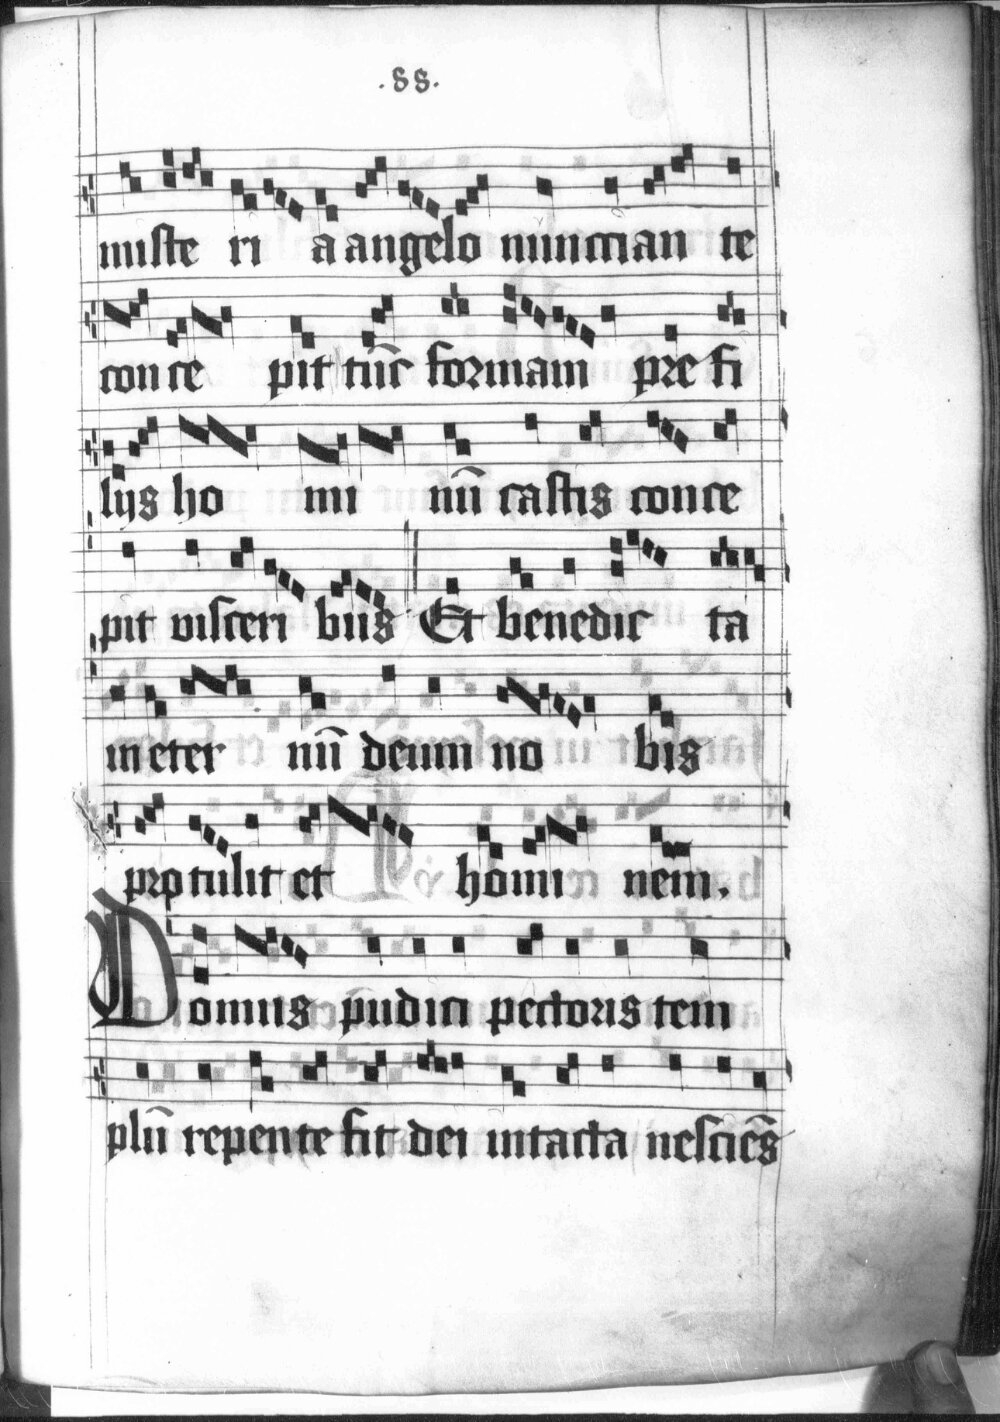 .88.
miste ri a angelo nunctian te
conce pit tūc formam prefi
lijs ho mi nū castis conce
pit visceri bus Et benedic ta
in eter nū deum no bis
protulit et homi nem.
Domus pudici pectoris tem
plū repente fit dei intacta nesciēs